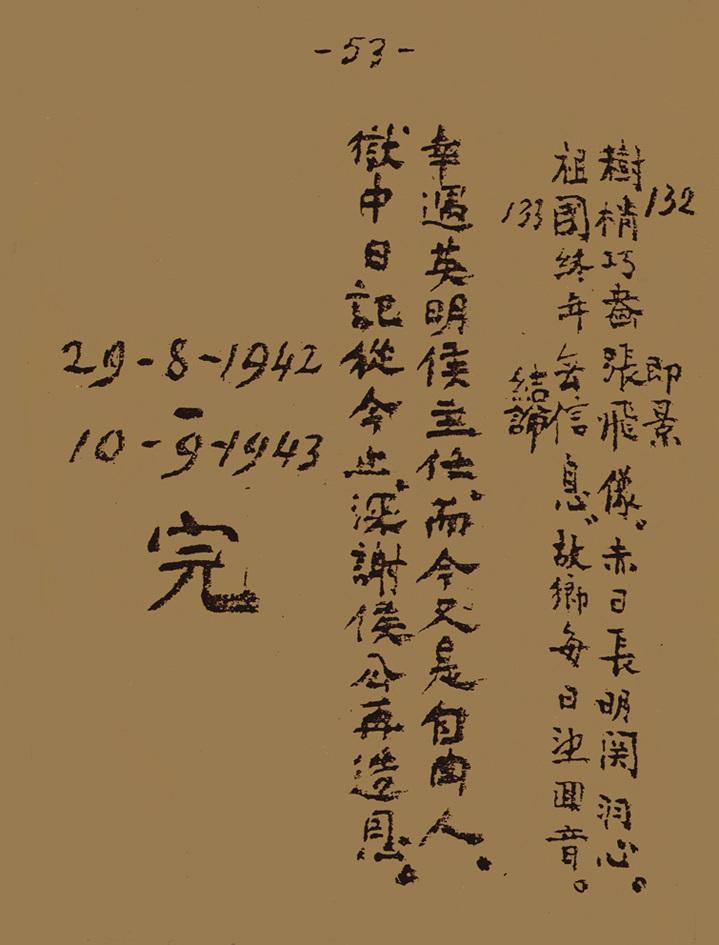 -53-
132
即景
樹梢巧畵張飛像。赤日長明関羽心。
祖國終年無信息。故鄉每日望囬音。
133
結論
幸遇英明侯主任。而今又是自由人。
獄中日記從今止。深謝侯公再造恩。
29-8-1942
-
10-9-1943
完